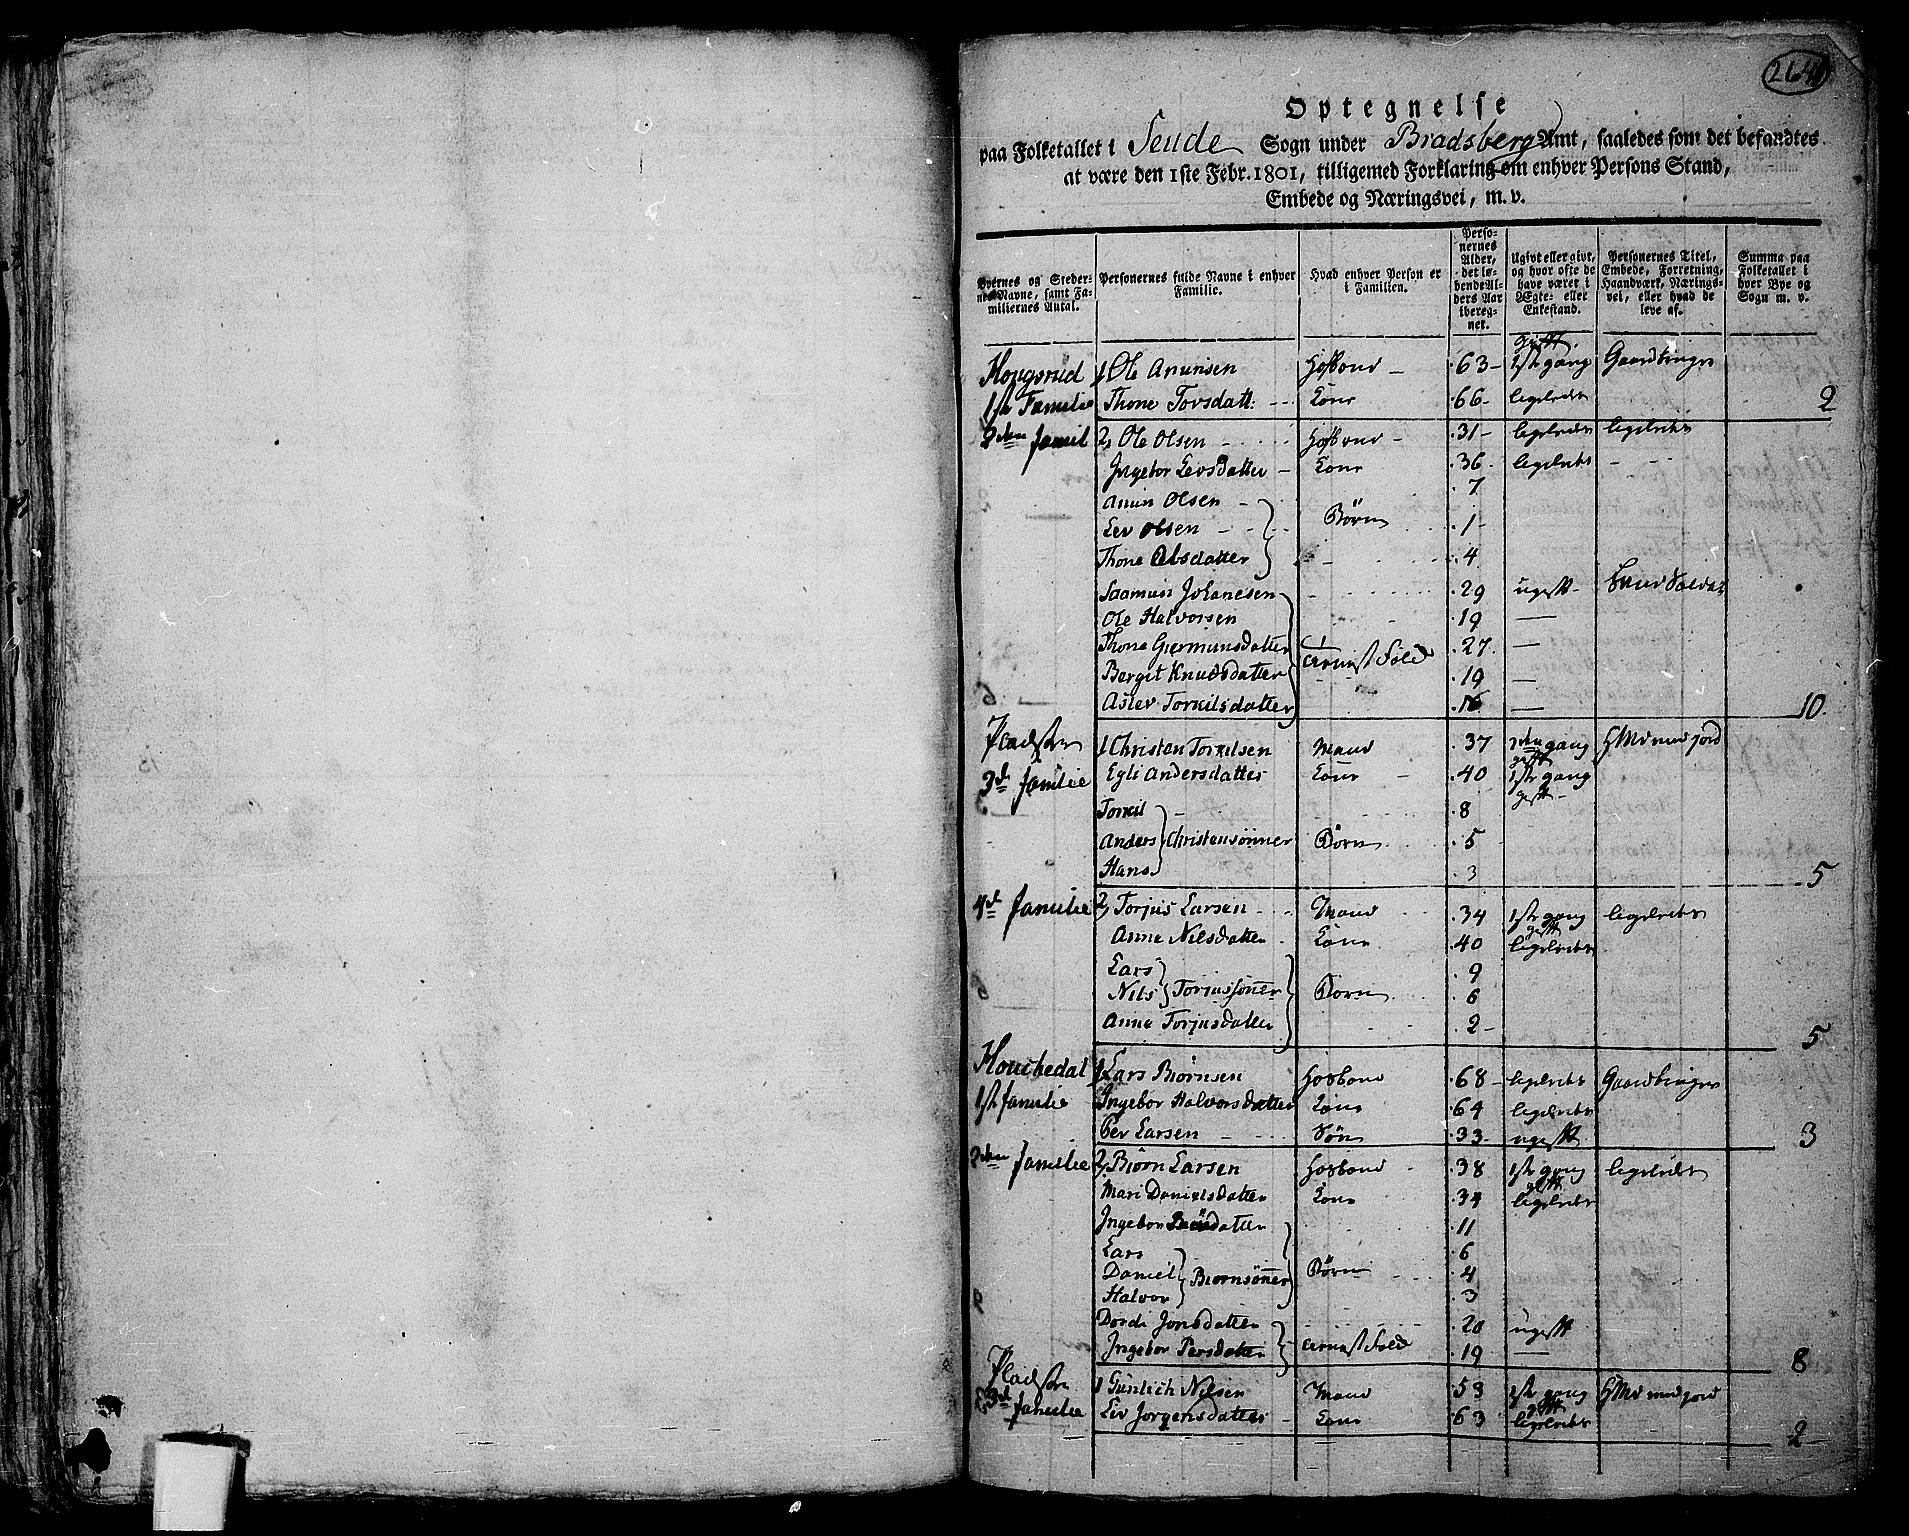 264
Optegnelse
paa Folketallet i Seude Sogn under Bradsberg Amt, saaledes som det befandtes
at være den 1ste Febr. 1801, tilligemed Forklaring om enhver Persons Stand,
Embede og Næringsvei, m. v.
Byernes og Stedernes Navne, samt Familiernes Antal.
Personernes fulde Navne i enhver Familie.
Hvad enhver Person er i Familien.
Personernes Alder, det løbende Alders Aar iberegnet.
Ugivt eller givt, og hvor ofte de have været i Ægte- eller Enkestand.
Personernes Titel, Embede, Forretning, Haandværk, Næringsvei, eller hvad de leve af.
Summa paa Folketallet i hver Bye og Sogn m. v.
1 Ole Anunsen Hosbond 63 1ste gang gift Gaardbruger
1ste Familie Thone Torsdatt: Kone 66 ligeledes 2
2den famil 2 Ole Olsen Hosbond 31 ligeledes ligeledes
Ingebor Levsdatter Kone 36 ligeledes
Anun Olsen 7
Lev Olsen Børn 1
Thone Olsdatter 4
Saamun Johanesen 29 ugift Land Soldat
Ole Halvorsen 19 —
Thone Giermunsdatter Tienist Folk 27 —
Bergit Knudsdatter 19 —
Aslev Torkilsdatter 16 — 10
Pladsen 1 Christen Torkilsen Mand 37 2den gang gift HMd med jord
3de familie Egli Andersdatter Kone 40 1ste gang gift
Torkil 8
Anders Christensønner Børn 5
Hans 3 5
4de familie 2 Torjus Larsen Mand 34 1ste gang gift ligeledes
Anne Nilsdatter Kone 40 ligeledes
Lars 9
Nils Torjussønner Børn 6
Anne Torjusdatter 2 5
1 Lars Biørnsen Hosbond 68 ligeledes Gaardbruger
1ste familie Ingebor Halvorsdatter Kone 64 ligeledes
Per Larsen Søn 33 ugift 3
2den familie 2 Biørn Larsen Hosbond 38 1ste gang gift ligeledes
Mari Danielsdatter Kone 34 ligeledes
Ingebor 11
Lars 6
Daniel Biørnsønner Børn 4
Halvor 3
Dordi Jonsdatter 20 ugift
Ingebor Persdatter Tienist Folk 19 — 8
Pladsen 1 Gunlich Nilsen Mand 53 1ste gang gift HMd med jord
3de familie Liv Jorgensdatter Kone 63 ligeledes 2